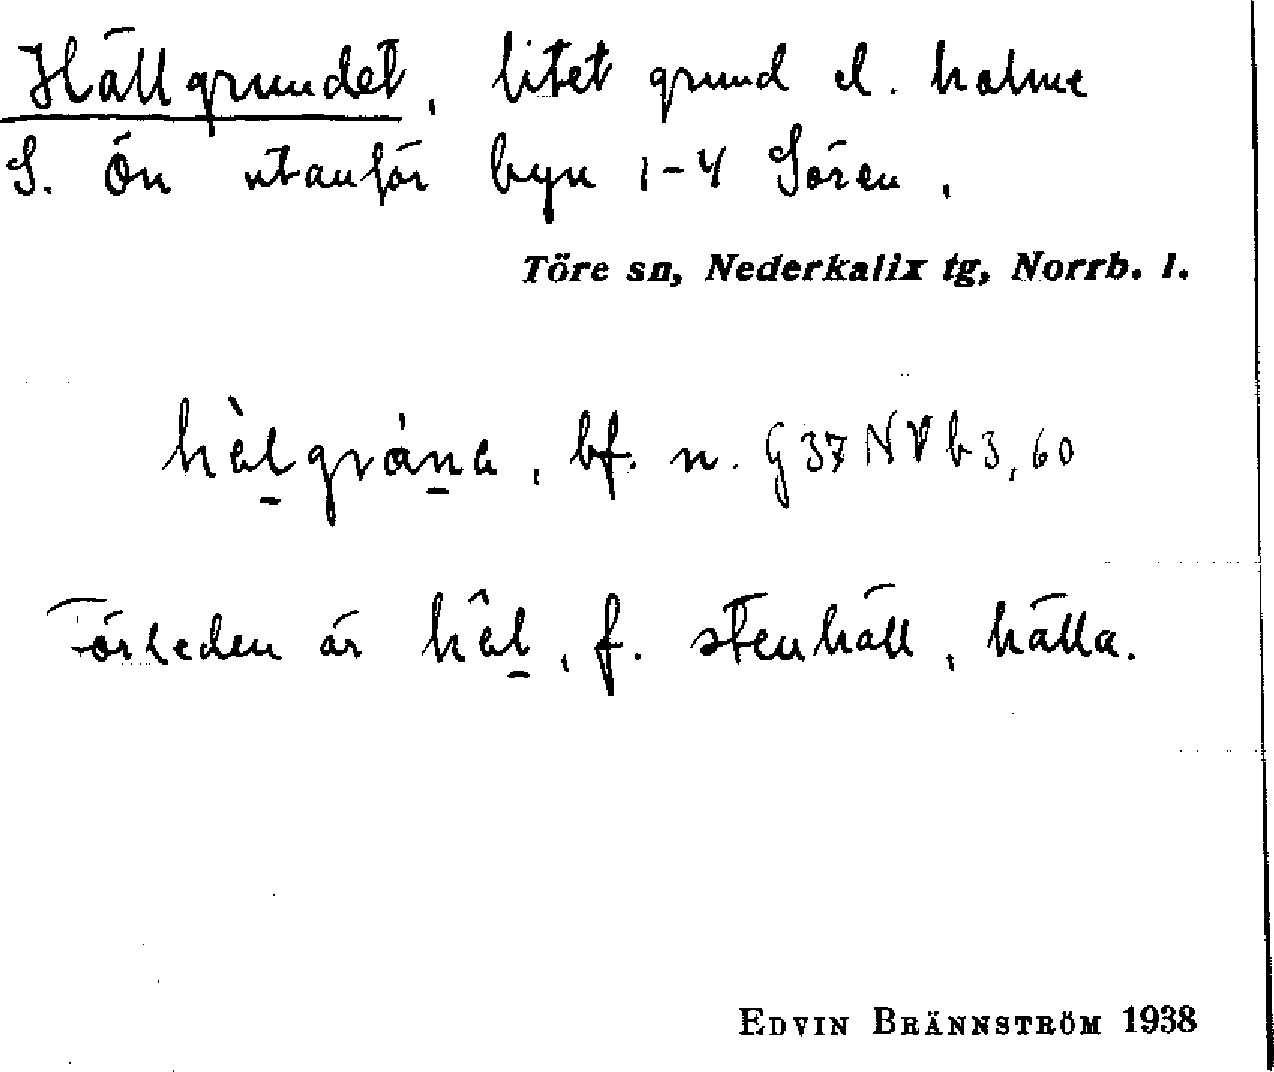 Hällgrundet, litet grund el. holme
S. Ön utanför byn 1-4 Sören,
Töre sn, Nederkalix tg, Norrb. l.
bf. n. G 37 NV b 3, 60
Förleden är f. stenhäll, hälla.
EDVIN BRÄNNSTRÖM 1938